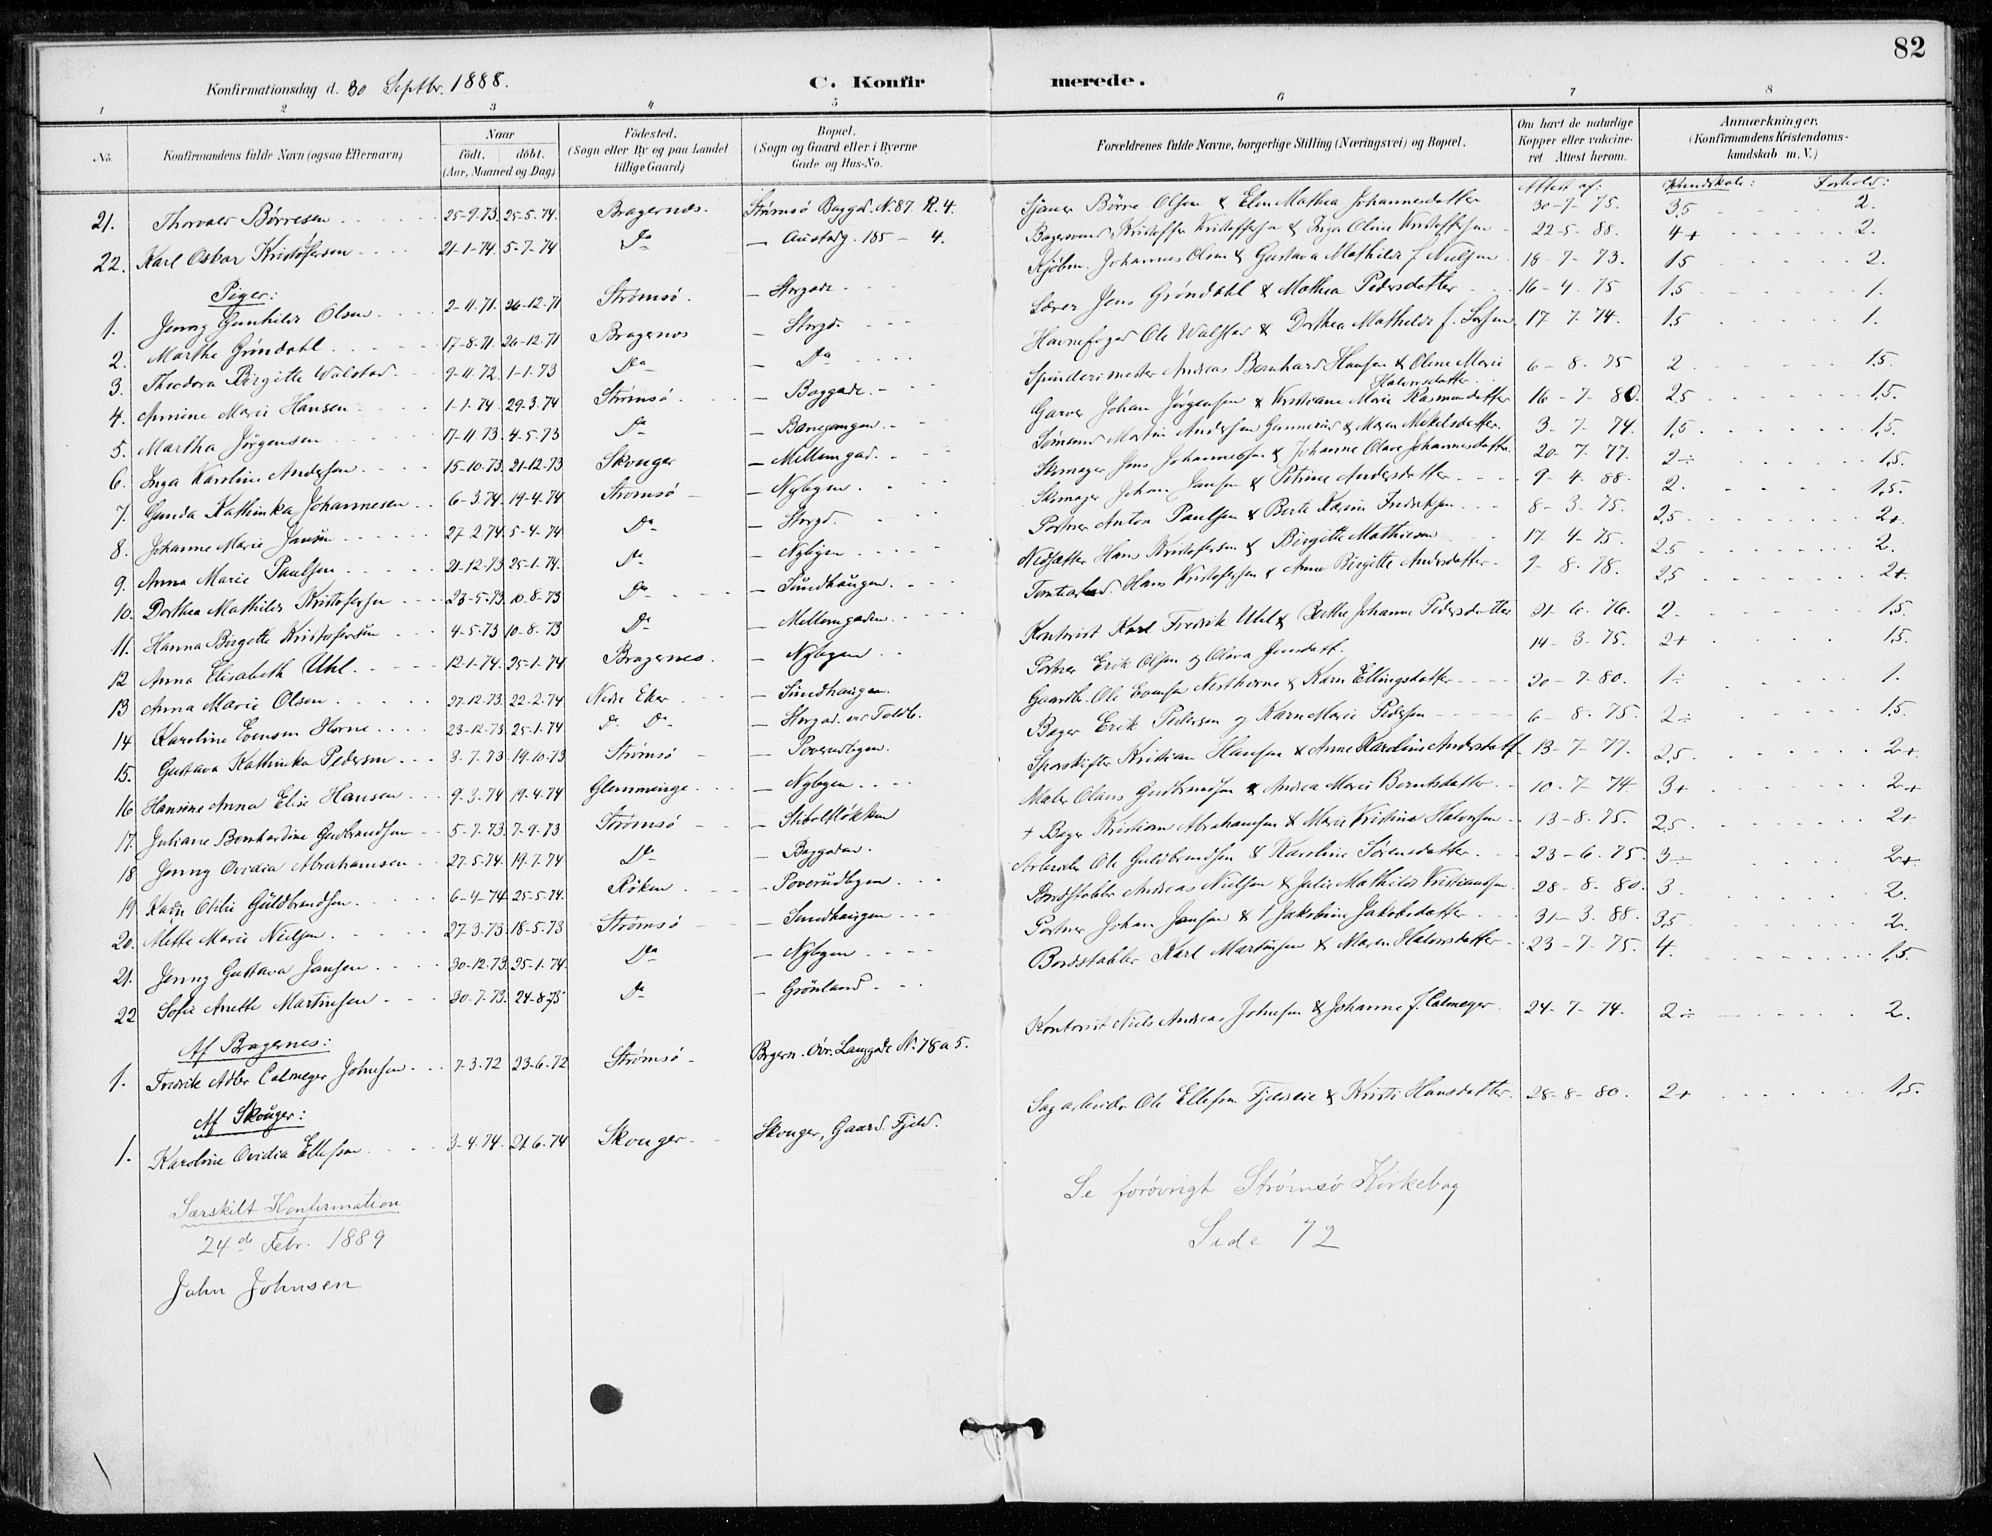 82
Konfirmationsdag d. 30 Septbr. 1888. C. Konfirmerede.
1 2 3 4 5 6 7 8
No. Konfirmandens fulde Navn (ogsaa Efternavn) Naar födt. döbt. (Aar, Maaned og Dag) Födested. (Sogn eller By og paa Landet tillige Gaard) Bopæl. (Sogn og Gaard eller i Byerne Gade og Hus-No. Forældrenes fulde Navne, borgerlige Stilling (Næringsvei) og Bopæl. Om havt de naturlige Kopper eller vakcineret Attest herom. Anmærkninger. (Konfirmandens Kristendomskundskab m. V.)
Attest af: Kundskab: Forhold:
21. Thorvald Börresen 25-9.73 25-5.74. Bragernæs. Strömsö Baggd. N. 87. R. 4. Sjauer Börre Olsen & Elen Mathea Johannesdatter 30-7-75. 3,5 2.
22. Karl Oskar Kristofersen 21-1.74. 5-7.74 Do — Austadg. 185 — 4. Kristoffer Kristoffersen & Inga Oline Kristoffersen 22-5-88. 4+ 2.
Piger:
1. Jenny Gunhilde Olsen 2-11.71. 26-12.71 Strömsö. — Storgade Kjöbm. Johannes Olsen & Gustava Mathilde f. Nielsen 18-7-73. 1,5 2.
2. Marthe Gröndahl 17-8.71. 26-12.71 Bragernes — Storgd. Lærer Jens Gröndahl & Mathea Pedersdatter 16-4.75 1,5 1.
3. Theodora Birgitte Walstad 9-4.72. 1-1.73 Do — Do Havnefoged Ole Walstad & Dorthea Mathilde f. 17-7-74. 1,5 1.
4. Annine Marie Hansen 1-1.74. 29.3.74 Strömsö. — Baggade. Spinderimester Andreas Bernhard Hansen & Oline Marie Halvorsdatter 6-8.75 2 1,5.
5. Martha Jörgensen 17-11.73. 4-5.73 Do Garver Johan Jörgensen & Kristiane Marie Rasmusdatter 16-7-80. 2,5 1,5.
6. Inga Karoline Andersen 15-10.73 21-12.73 Skouger — Mellemgad. Sömand Martin Andersen & Maren Mikelsdatter 3-7-74. 1,5 1,5.
7. Gunda Kathinka Johannesen 6-3.74. 19-4.74 Strömsö — Nybyen. Skomager Jens Johannessen & Johanne Olave Johannesdatter 20-7.77. 2÷ 1,5.
8. Johanne Marie Jansen 27-2.74. 5-4.74 Do — Storgd. Skomager Johan Jansen & Petrine Andersdatter 9-4-88. 2. 1,5.
9. Anna Marie Paulsen 21-12.73 25-1.74. Do — Nybyen Portner Anton Paulsen & Berte Karine Fredriksen 8-3.75. 2,5 2+
10. Dorthea Mathilde Kristofersen 23-5.73. 10-8-73 Do — Sundhaugen. Nedsætter Hans Kristofersen & Birgitte Mathiesen 17-4-75. 2,5 2.
11. Hanna Birgitte Kristofersen 4-5.73 10-8.73 Do — Mellemgaden. Tomtearbd. Hans Kristofersen & Anne Birgitte Andersdatter 9-8.78. 2,5 2+
12 Anna Elisabeth Uhl. 12-1.74. 25-1.74 Bragernes. — Nybyen Kontorist Karl Fredrik Uhl & Berthe Johanne Pedersdatter 21.6.76. 2. 1,5.
13 Anna Marie Olsen 27-12.73. 22-2.74 Nedre Eker — Sundhaugen. Portner Erik Olsen og Olava Jensdatt. 14-3.75. 2+ 1,5.
14 Karoline Evensen Horne 23-12.73 25-1.74 Do Do — Storgad. ved Toldb. Gaardbr. Ole Evensen & Karen Ellingsdatter 20-7-80. 1÷ 1.
15. Gustava Kathinka Pedersen 3-7.73 19-10.73 Strömsö — Poverudbyen. Bager Erik Pedersen og Karen Marie Pedersen 6-8.75. 2÷ 1,5.
16 Hansine Anna Elise Hansen 9-3.74 19-4.74 Glemminge — Nybyen Sporskifter Kristian Hansen & Anne Karoline Andersdatt. 13-7-77. 2,5. 2+
17. Juliane Bernhardine Gudbrandsen 5-7.73 7-9.73 Strömsö — Stibolslökken Maler Olaus Gudbrandsen & Andrea Marie Berntsdatter 10.7-74 3+ 2+
18. Jenny Ovidia Abrahamsen 27.5.74. 19.7.74 Do — Baggaden. + Bager Kristian Abrahamsen & Marie Kristine Halvorsen 13-8.75. 2,5 2+
19 Karen Otilie Guldbrandsen 6-4-74 25-5.74. Röken — Poverudbyen Arbeider Ole Guldbrandsen & Karoline Sörensdatter 23-6.75. 3÷ 2+
20. Mette Marie Nielsen 27.3.73. 18-5.73 Strömsö — Sundhaugen Bordstabler Andreas Nielsen & Julie Mathilde Kristiansen 28-8.80. 3. 2.
21. Jenny Gustava Jansen 30-12.73. 25-1.74. Do — Nybyen Portner Johan Jansen & † Jakobine Jakobsdatter 31-3.88. 3,5 2.
22 Sofie Anette Martinsen 30-7.73. 24-8.73 Do — Grönland Bordstabler Karl Martinsen & Maren Halvorsdatter 23-7-75. 4. 1,5.
Af Bragernes:
1. Fredrik Adler Calmeyer Johnsen 7-3.72 23-6.72 Strömsö Brgern. Övr. Langgade N. 78 a 5. Kontorist Niels Andreas Johnsen & Johanne f. Calmeyer 24-7-74. 2÷ 2.
Af Skouger:
1. Karoline Ovidia Ellefsen 3-4.74. 21.6.74 Skouger Skouger, Gaard. Fjeld. Sagarbeider Ole Ellefsen & Kristi Hansdatter 28-8-80. 2+ 1,5.
Særskilt Konfirmation
24de Febr. 1889
John Johnsen
Se forövrigt Strömsö Kirkebog
Side 72